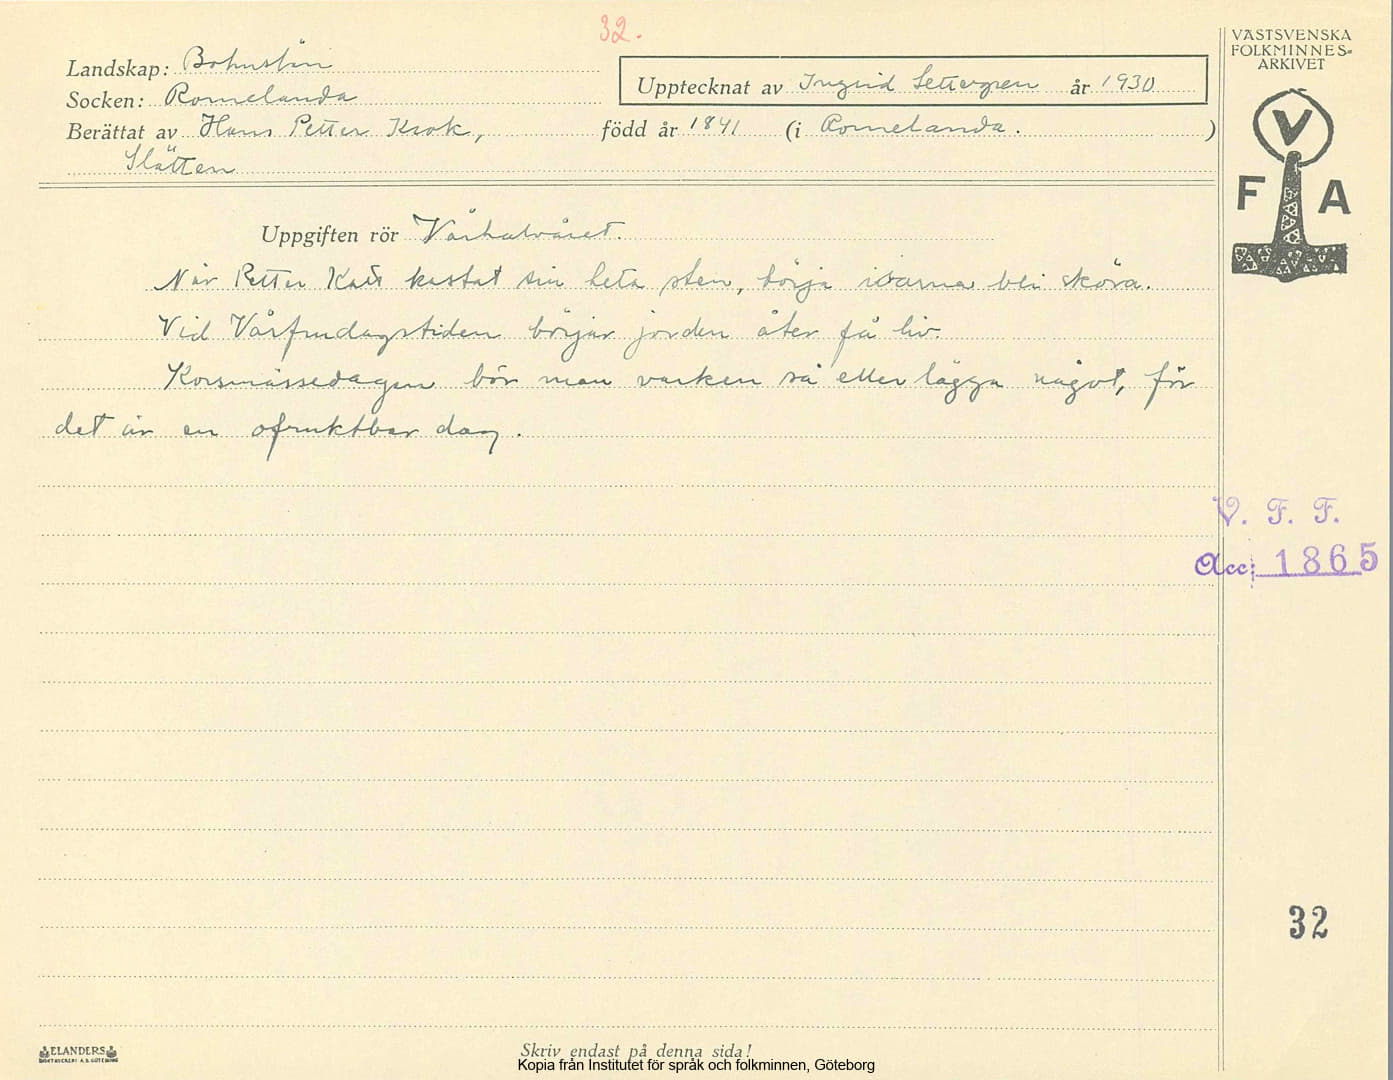 32.
VÄSTSVENSKA
FOLKMINNES-
ARKIVET
Landskap: Bohuslän
Upptecknat av Ingrid Settergren år 1930
Socken: Romelanda
Berättat av Hans Petter Krok, född år 1841 (i Romelanda. )
Slätten
V
F A
Uppgiften rör Vårhalvåret.
När Petter Katt kastat sin heta sten, börja isarna bli sköra.
Vid Vårfrudagstiden börjar jorden åter få liv.
Korsmässedagen bör man varken så eller lägga något, för
det är en ofruktbar dag.
V. F. F.
Acc: 1865
32
ELANDERS
BOKTRYCKERI A.B. GÖTEBORG
Skriv endast på denna sida!
Kopia från Institutet för språk och folkminnen, Göteborg